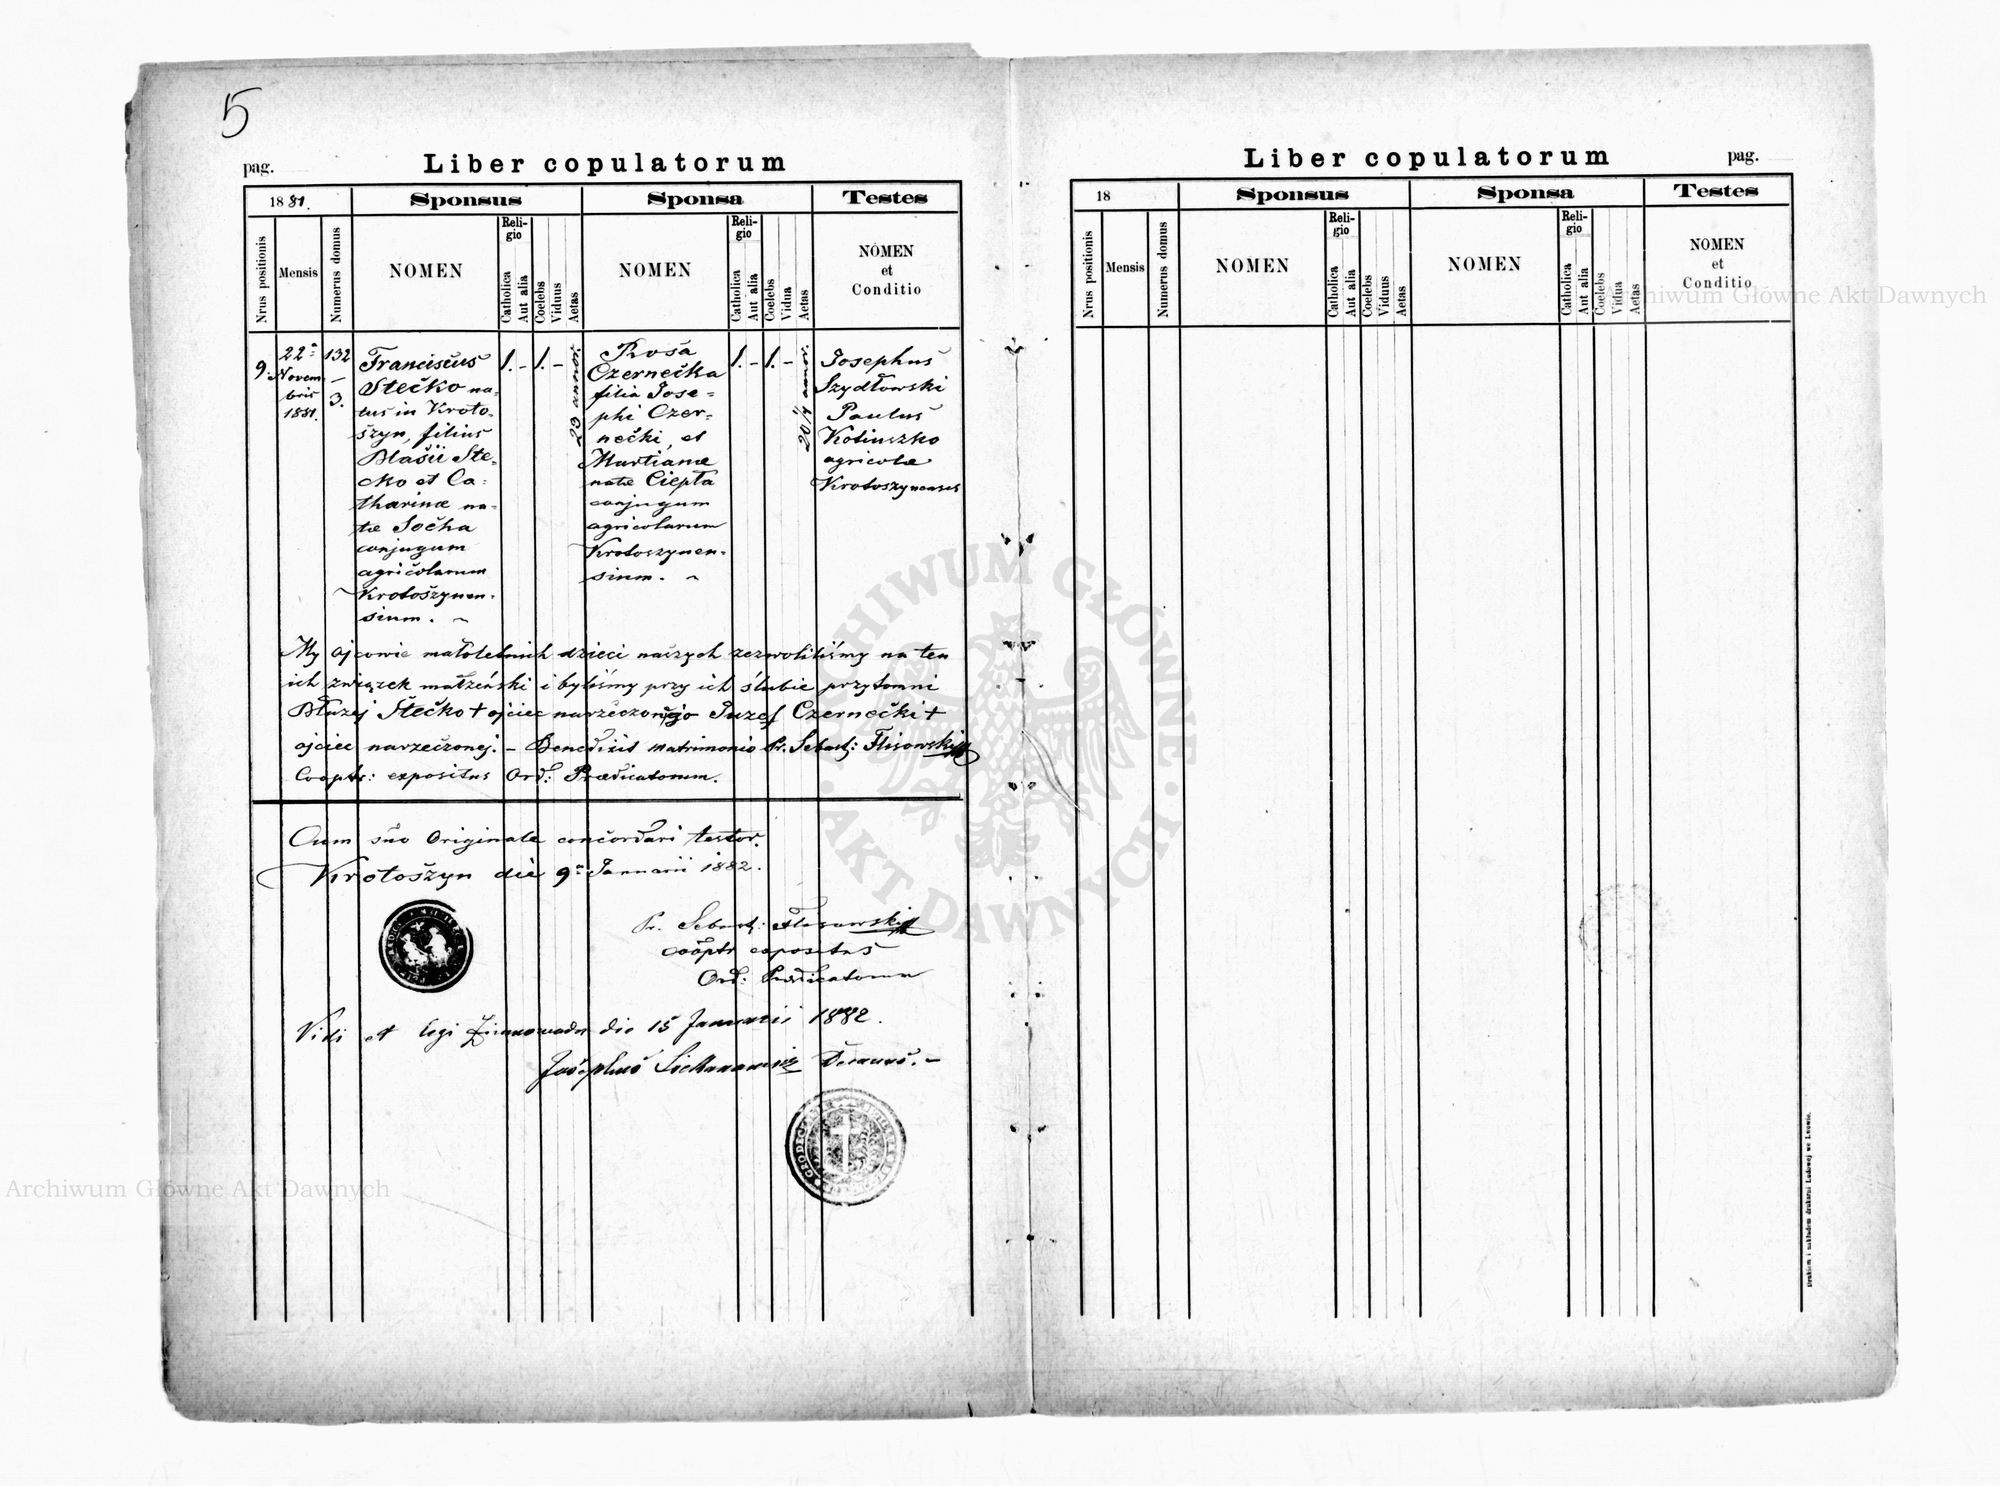 5
pag.
Liber copulatorum
1881.
Sponsus
Sponsa
Testes
Nrus positionis
Mensis
Numerus domus
NOMEN
Religio
Catholica
Aut alia
Coelebs
Viduus
Aetas
NOMEN
Religio
Catholica
Aut alia
Coelebs
Vidua
Aetas
NOMEN
et
Conditio
9.
22a
Novem
bris
1881.
132
–
3.
Franciscus
Stečko na-
tus in Kroto-
szyn, filius
Blasii Ste-
cko et Ca-
tharinæ na-
tæ Socha
conjugum
agricolarum
Krotoszynen-
sium. ~
1. - 1. -
23 annor.
Rosa
Czernečka
filia Jose-
phi Czer-
nečki, et
Martianæ
natæ Ciepła
conjugum
agricolarum
Krotoszynen-
sium. ~
1. - 1. -
20 1/4 annor.
Josephus
Szydłowski
Paulus
Kotiuszko
agricolæ
Krotoszynenses
My ojcowie małoletnich dzieci naszych zezwoliliśmy na ten
ich związek małżeński i byliśmy przy ich ślubie przytomni
Błażej Stečko + ojciec narzeczonego Juzef Czernečki +
ojciec narzeczonej. – Benedixit matrimonio Pr. Sebast: Flisowski
Cooptr: expositus Ord: Prædicatorum.
Cum suo Originale concordari testor.
Krotoszyn die 9a Januarii 1882.
Pr. Sebast: Flisowski
cooptr expositus
Ord: Prædicatorum
Vidi et legi die 15 Januarii 1882.
Josephus Decanus. –
Liber copulatorum
pag.
18
Sponsus
Sponsa
Testes
Nrus positionis
Mensis
Numerus domus
NOMEN
Religio
Catholica
Aut alia
Coelebs
Viduus
Aetas
NOMEN
Religio
Catholica
Aut alia
Coelebs
Vidua
Aetas
NOMEN
et
Conditio
Drukiem i nakładem drukarni Ludowej we Lwowie.
ARCHIWUM GŁÓWNE
AKT DAWNYCH
Archiwum Główne Akt Dawnych
Archiwum Główne Akt Dawnych